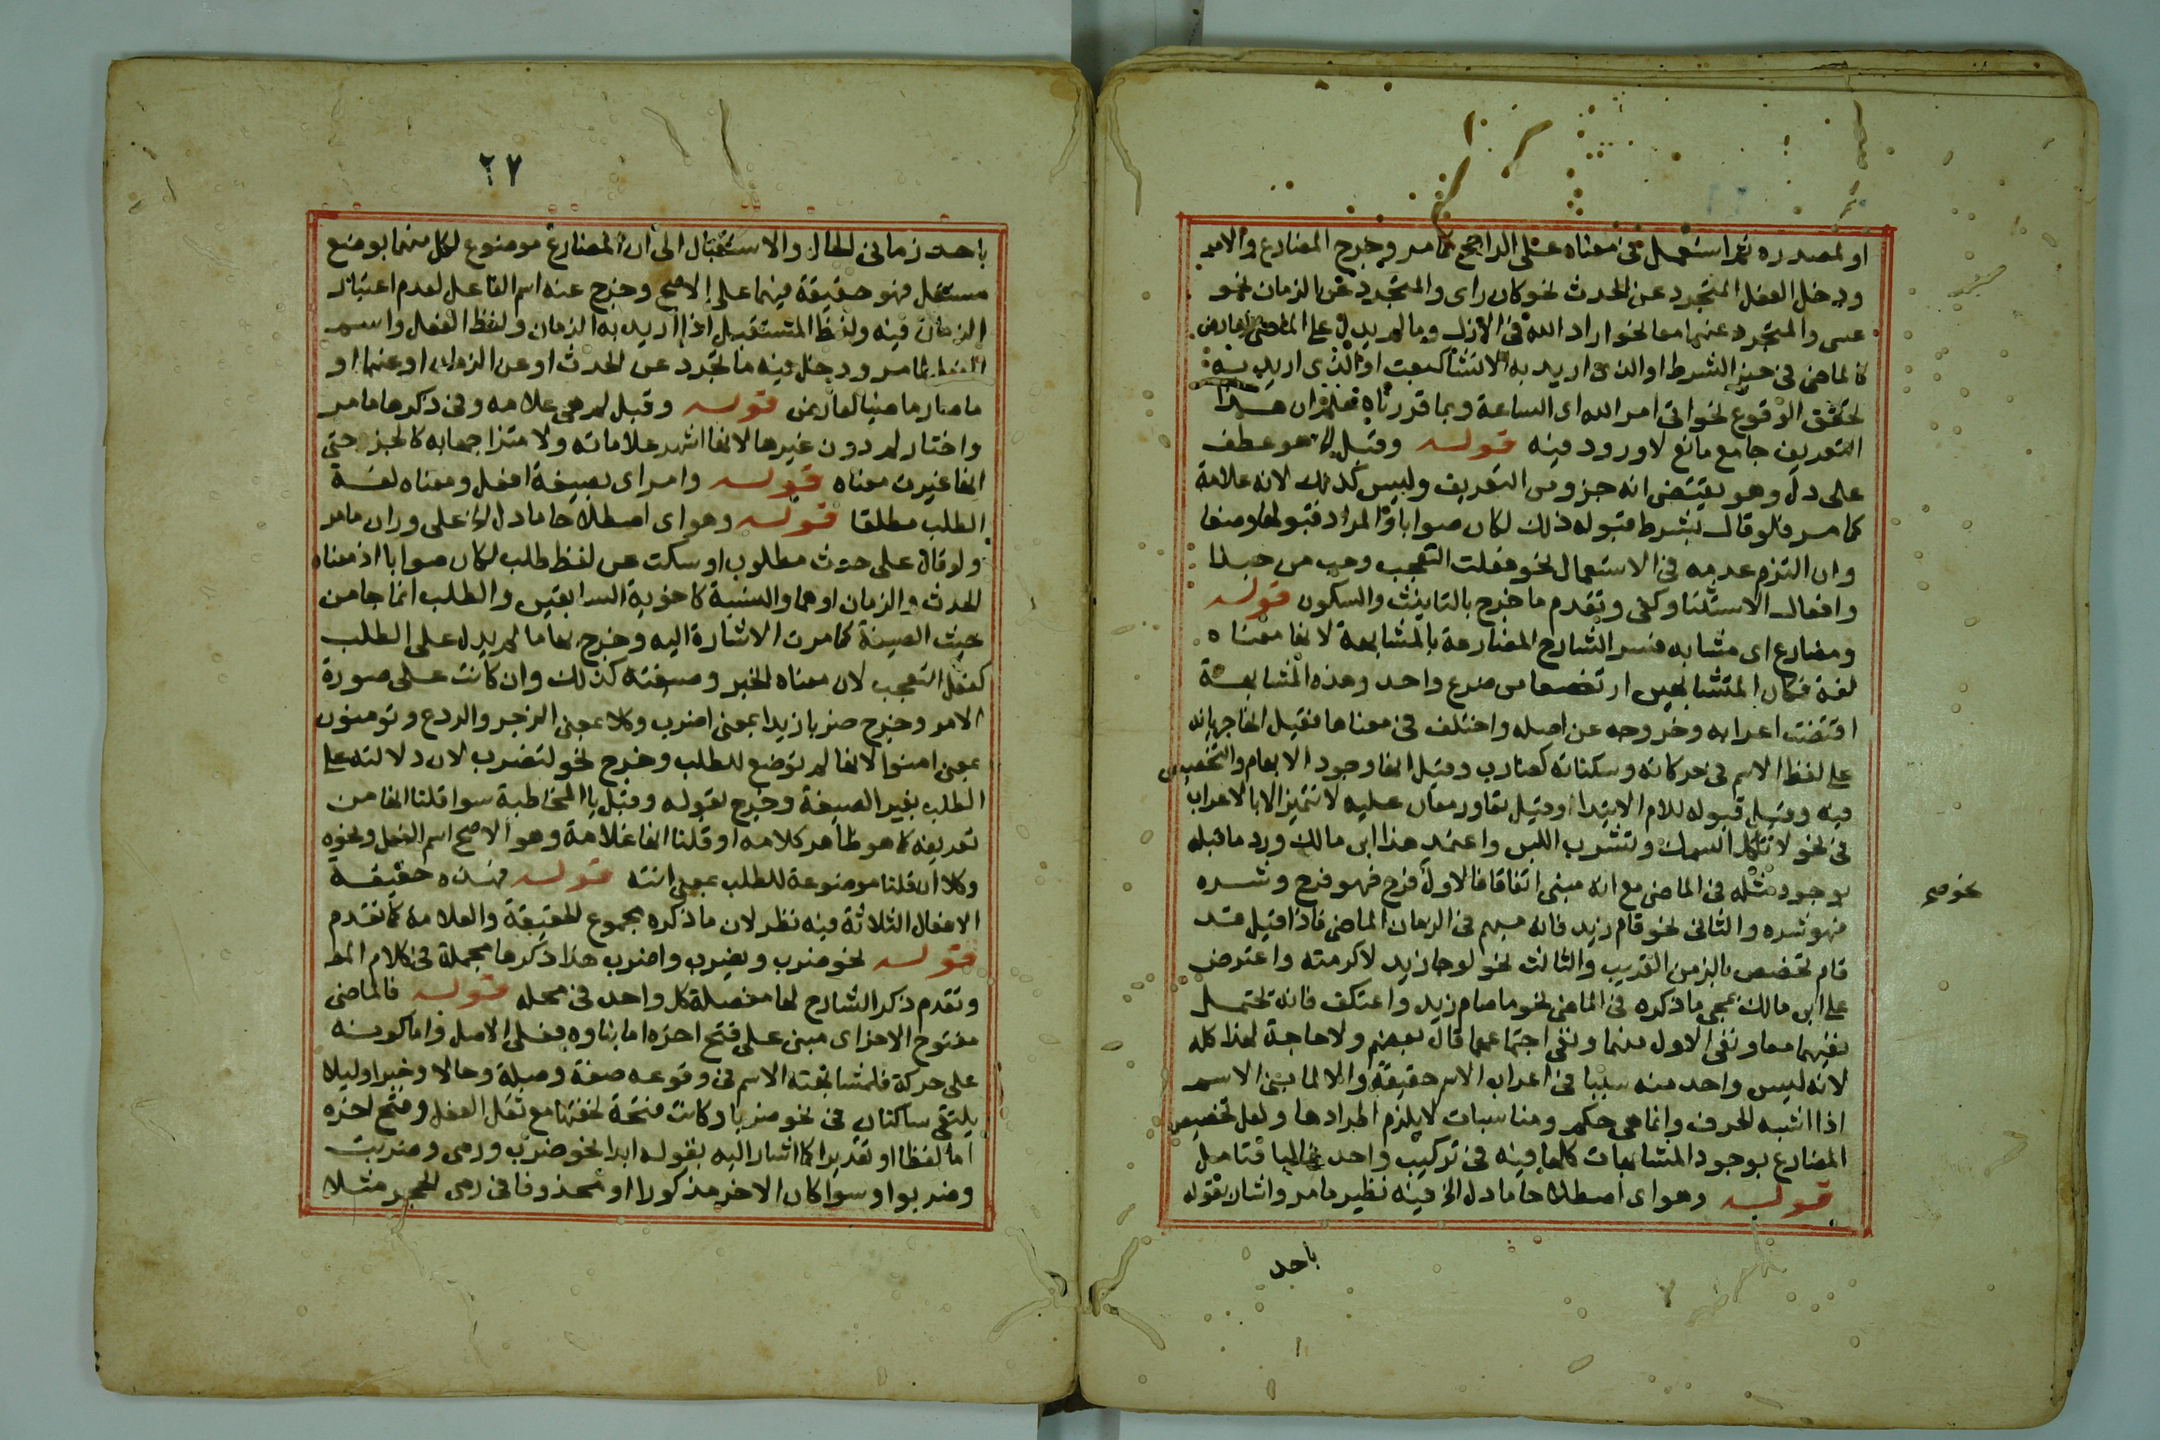 او لمصدره ثم استعمل في معناه على الراجح كما مر وخرج المضارع والامر
ودخل الفعل المتجرد عن الحدث نحو كان راى والمتجرد عن الزمان نحو
عسى والمتجرد عنهما معا نحو اراد الله في الازل وما لم يدل على الماضي لعارض
كالماضي في حيز الشرط او الذي اريد به الانشا كبعت او الذي اريد به
تحقق الوقوع نحو اتى امر الله اى الساعة وبما قررناه فعلم ان هذا
التعريف جامع مانع لا ورود فيه قوله وقبل لم هو عطف
على دل وهو يقتضي انه جزو من التعريف وليس كذلك لانه علامة
كما مر فلو قال بشرط قبوله ذلك لكان صوابا والمراد قبولها وضعا
وان التزم عدمه في الاستعمال نحو فعلت التعجب وحب من حبذا
وافعال الاستثنا وكفى وتقدم ما خرج بالتانيث والسكون قوله
ومضارع اى مشابه فسر الشارح المضارعة بالمشابهة لانها معناه
لغة فكان المتشابهين ارتضعا من ضرع واحد وهذه المشابهة
اقتضت اعرابه وخروجه عن اصله واختلف في معناها فقيل انها جريانه
على لفظ الاسم في حركاته وسكناته كضارب وقيل انها وجود الابهام والتخصيص
فيه وقيل قبوله للام الابتدا وقيل تعاور معان عليه لا تتميز الا بالاعراب
في نحو لا تاكل السمك وتشرب اللبن واعتمد هذا ابن مالك ورد ما قبله
بوجود مثله في الماضي مع انه مبني اتفاقا فالاول فرح فهو فرح وشره
نحو صح
فهو شره والثاني نحو قام زيد فانه مبهم في الزمان الماضي فاذا قيل قد
قام تخصص بالزمن القريب والثالث نحو لو جا زيد لاكرمته واعترض
على ابن مالك بمجي ما ذكره في الماضي نحو ما صام زيد واعتكف فانه يحتمل
نفيهما معا ونفي الاول منهما ونفي اجتماعهما قال بعضهم ولا حاجة لهذا كله
لانه ليس واحد منه سببا في اعراب الاسم حقيقة والا لما بني الاسم
اذا اشبه الحرف وانما هي حكم ومناسبات لا يلزم اطرادها ولعل تخصيص
المضارع بوجود المشابهات كلها فيه في تركيب واحد غالبا فتامل
قوله وهو اى اصطلاحا ما دل الخ فيه نظير ما مر واشار بقوله
باحد
٢٧
باحد زماني الحال والاستقبال الى ان المضارع موضوع لكل منهما بوضع
مستقل فهو حقيقة فيهما على الاصح وخرج عنه اسم الفاعل لعدم اعتبار
الزمان فيه ولفظ المستقبل اذا اريد به الزمان ولفظ الفعل واسم
الفعل كما مر ودخل فيه ما تجرد عن الحدث او عن الزمان او عنهما او
ما صار ماضيا لعارض قوله وقبل لم هي علامه وفي ذكرها ما مر
واختار لم دون غيرها لانها اشهر علاماته ولامتزاجها به كالجزء حتى
انها غيرت معناه قوله وامر اى بصيغة افعل ومعناه لغة
الطلب مطلقا قوله وهو اى اصطلاحا ما دل الخ على وزان ما مر
ولو قال على حدث مطلوب او سكت عن لفظ طلب لكان صوابا اذ معناه
الحدث والزمان او هما والنسبة كاخويه السابقين والطلب انما جا من
حيث الصيغة كما مرت الاشارة اليه وخرج بها ما لم يدل على الطلب
كفعل التعجب لان معناه الخبر وصيغته كذلك وان كانت على صورة
الامر وخرج ضربا زيدا بمعنى اضرب وكلا بمعنى الزجر والردع وتومنون
بمعنى امنوا لانها لم توضع للطلب وخرج نحو لتضرب لان دلالته على
الطلب بغير الصيغة وخرج بقوله وقبل يا المخاطبة سوا قلنا انها من
تعريفه كما هو ظاهر كلامه او قلنا انها علامة وهو الاصح اسم الفعل ونحوه
وكلا ان قلنا موضوعة للطلب بمعنى انته قوله فهذه حقيقة
الافعال الثلاثة فيه نظر لان ما ذكره مجموع الحقيقة والعلامة كما تقدم
قوله نحو ضرب ويضرب واضرب هذا ذكرها مجملة في كلام المص
وتقدم ذكر الشارح لها مفصلة كل واحد في محله قوله فالماضي
مفتوح الاخر اى مبني على فتح اخره اما بناوه فعلى الاصل واما كونه
على حركة فلمشابهته الاسم في وقوعه صفة وصلة وحالا وخبرا وليلا
يلتقي ساكنان في نحو ضربا وكانت فتحة لخفتها مع ثقل الفعل وفتح اخره
اما لفظا او تقديرا كما اشار اليه بقوله ابدا نحو ضرب ورمى وضربت
وضربوا وسوا كان الاخر مذكورا او محذوفا في رمى للحجر مثلا